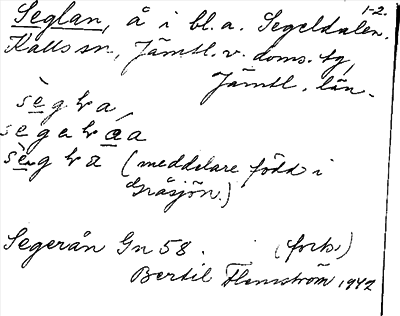 1-2.
Seglan, å i bl. a. Segeldalen.
Kalls sn, Jämtl. v. doms. tg,
Jämtl. län.
sègra
segeråa
sègra (meddelare född i
Gråsjön.)
Segerån Gn 58. (forts.)
Bertil Flemström 1942